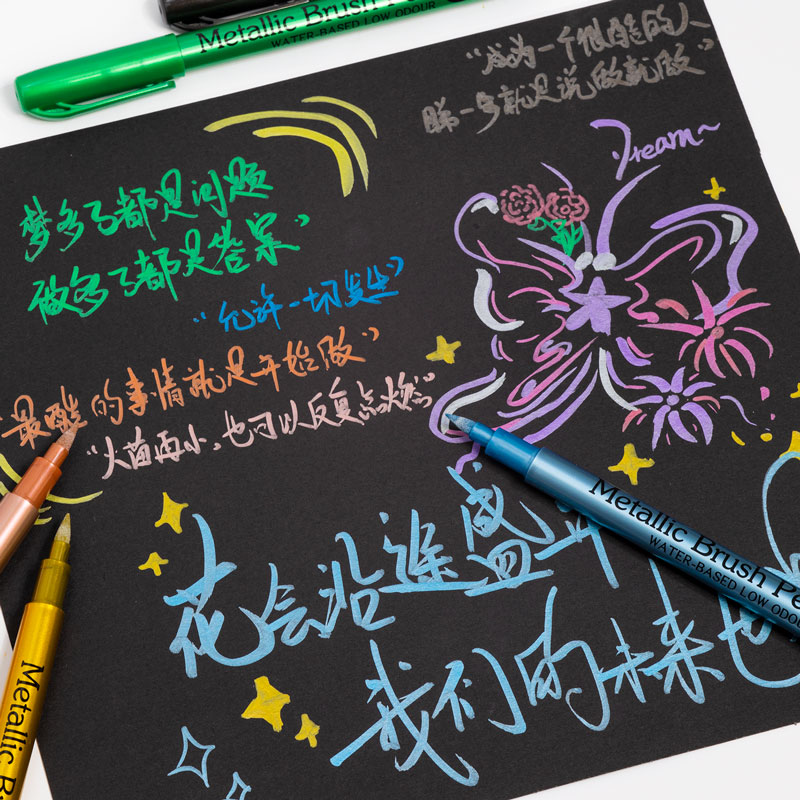 Metallic Brush Pe
WATER-BASED LOW ODOUR
“成为一个很酷的人
第一步就是说做就做”
Dream~
梦多了都是问题
做多了都是答案”
“允许一切发生”
“最酷的事情就是开始做”
“火苗再小，也可以反复点燃”
花会沿途盛开
我们的未来也
Metallic Brush Pen
WATER-BASED LOW ODOU
Metallic B